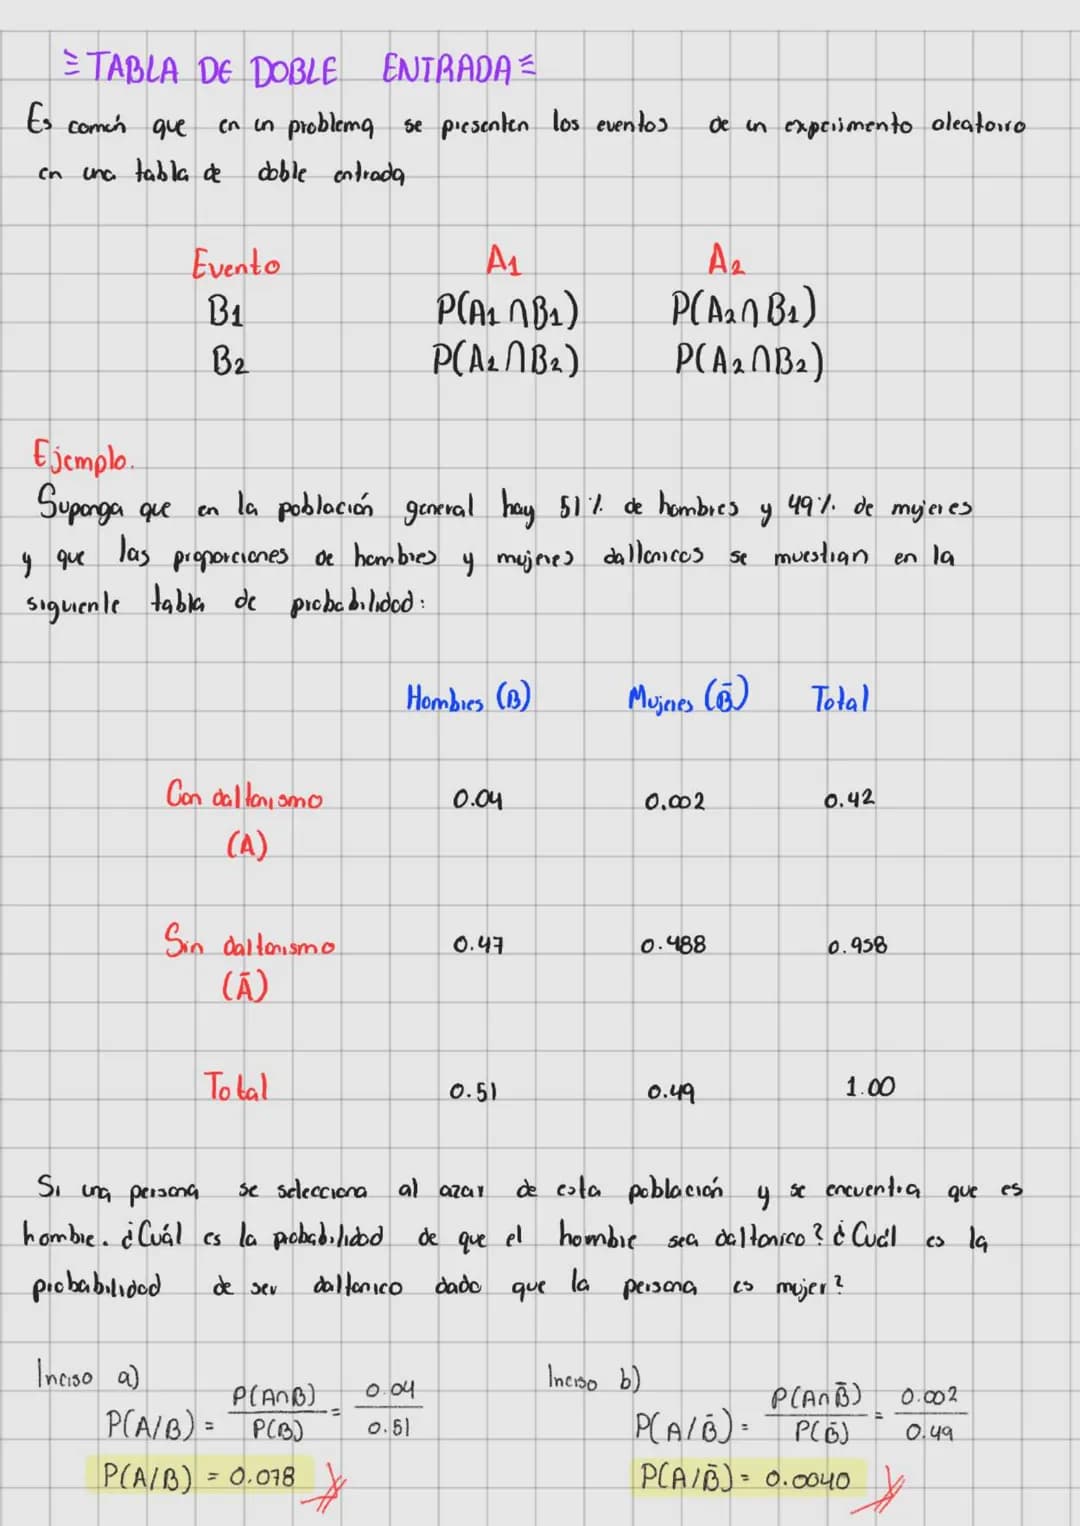 TABLA DE DOBLE ENTRADA
Es común que en un problema se presenten los eventos de un experimento aleatorio
en una tabla de doble entrada
Evento A1 A2
B1 P(A1∩B1) P(A2∩B1)
B2 P(A2∩B2) P(A2∩B2)
Ejemplo.
Suponga que en la población general hay 51% de hombres y 49% de mujeres
y que las proporciones de hombres y mujeres daltonicos se muestran en la
siguiente tabla de probabilidad:
Hombres (B) Mujeres (B̄) Total
Con daltonismo 0.04 0.002 0.42
(A)
Sin daltonismo 0.47 0.488 0.958
(Ā)
Total 0.51 0.49 1.00
Si una persona se selecciona al azar de esta población y se encuentra que es
hombre. ¿Cuál es la probabilidad de que el hombre sea daltonico? ¿Cuál es la
probabilidad de ser daltonico dado que la persona es mujer?
Inciso a)
P(A/B) = P(A∩B)/P(B) = 0.04/0.51
P(A/B) = 0.078
Inciso b)
P(A/B̄) = P(A∩B̄)/P(B̄) = 0.002/0.49
P(A/B̄) = 0.0040